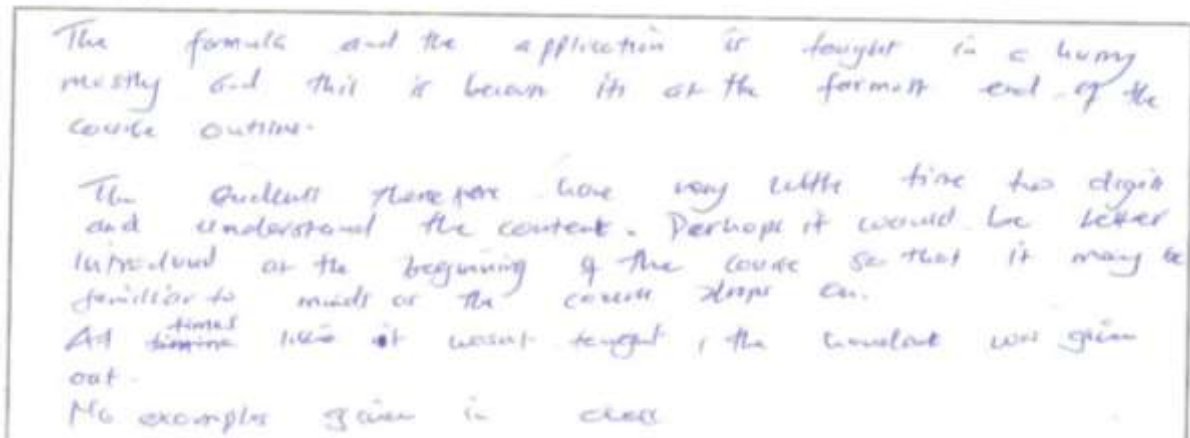 The formula and the application is taught in a hurry
mostly and this is because its at the farmost end of the
course outline.
The students therefore have very little time to digest
and understand the content. Perhaps it would be better
introduced at the beginning of the course so that it may be
familiar to minds as the course drags on.
At times like it wasnt taught, the handout was given
out.
No examples given in class